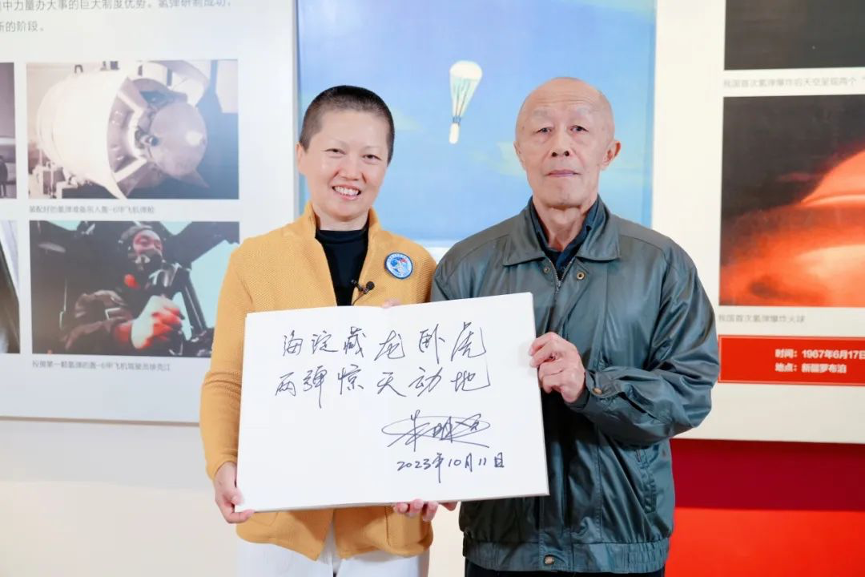 中力量办大事的巨大制度优势。氢弹研制成功,
新的阶段。
装配好的氢弹准备吊入轰-6甲飞机弹舱
投掷第一颗氢弹的轰-6甲飞机驾驶员徐克江
海淀藏龙卧虎
两弹惊天动地
2023年10月11日
我国首次氢弹爆炸火球
时间:1967年6月17日
地点:新疆罗布泊